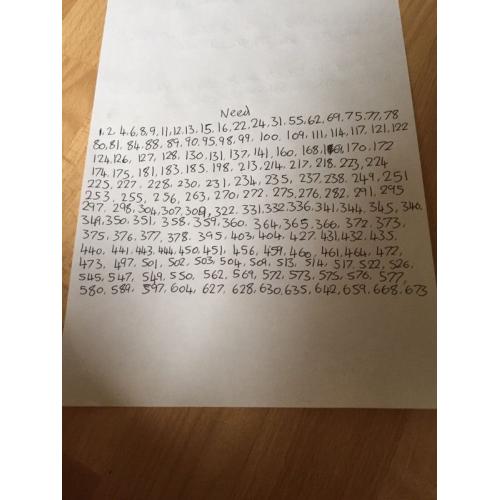 Need
1, 2, 4, 6, 8, 9, 11, 12, 13, 15, 16, 22, 24, 31, 55, 62, 69, 75, 77, 78
80, 81, 84, 88, 89, 90, 95, 98, 99, 100, 109, 111, 114, 117, 121, 122
124, 126, 127, 128, 130, 131, 137, 141, 160, 168, 169, 170, 172
174, 175, 181, 183, 185, 198, 213, 214, 217, 218, 223, 224
225, 227, 228, 230, 231, 234, 235, 237, 238, 249, 251
253, 255, 256, 263, 270, 272, 275, 276, 282, 291, 295
297, 298, 304, 307, 309, 322, 331, 332, 336, 341, 344, 345, 346,
349, 350, 351, 358, 359, 360, 364, 365, 366, 372, 373,
375, 376, 377, 378, 395, 403, 404, 427, 431, 432, 435,
440, 441, 443, 444, 450, 451, 456, 459, 460, 461, 464, 472,
473, 497, 501, 502, 503, 504, 509, 513, 514, 517, 522, 526,
545, 547, 549, 550, 562, 569, 572, 573, 575, 576, 577,
580, 589, 597, 604, 627, 628, 630, 635, 642, 659, 668, 673